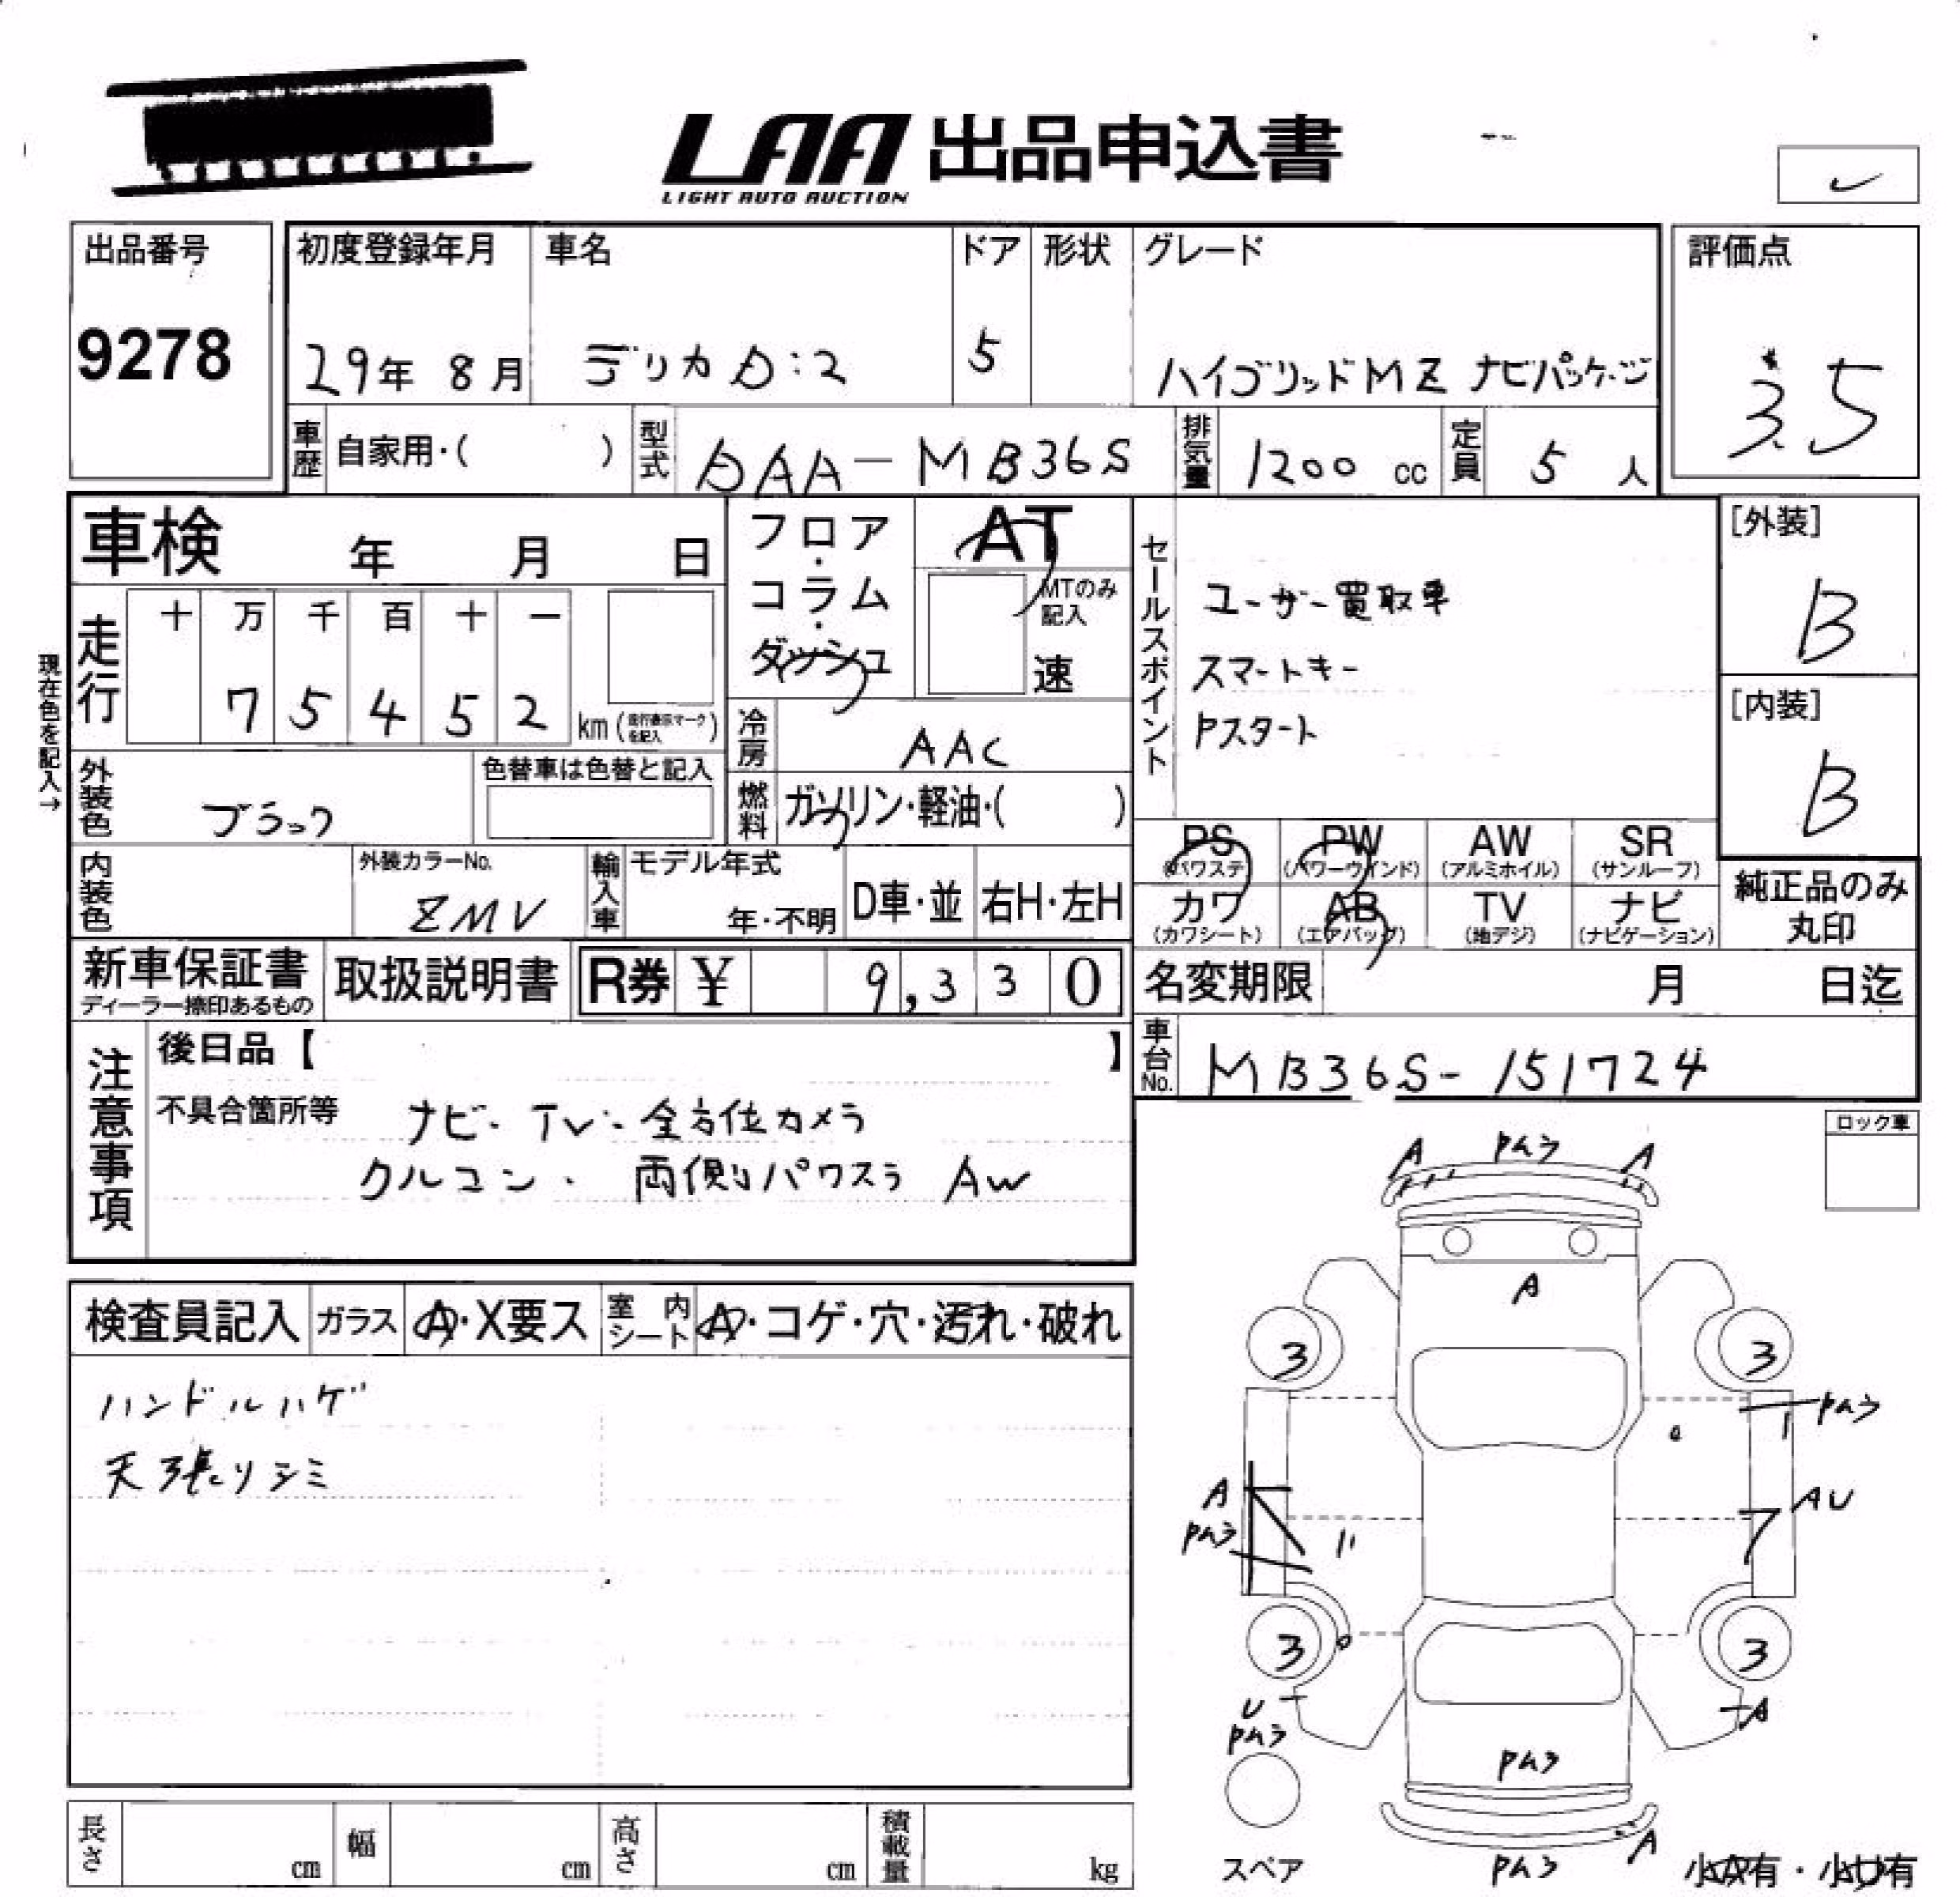 LAA 出品申込書
LIGHT AUTO AUCTION
出品番号
9278
初度登録年月
29年 8月
車名
デリカD:2
ドア
5
形状
グレード
ハイブリッドMZ ナビパッケージ
評価点
3.5
車歴 自家用・( )
型式 DAA-MB36S
排気量 1200 cc
定員 5 人
車検 年 月 日
フロア・コラム・ダッシュ
AT
MTのみ記入
速
現在色を記入→
走行
十 万 千 百 十 一
7 5 4 5 2
km(走行表示マークを記入)
冷房 AAC
外装色 ブラック
色替車は色替と記入
燃料 ガソリン・軽油・( )
内装色
外装カラーNo.
ZMV
輸入車 モデル年式
年・不明
D車・並
右H・左H
セールスポイント
ユーザー買取車
スマートキー
Pスタート
[外装]
B
[内装]
B
PS (パワステ)
PW (パワーウインド)
AW (アルミホイル)
SR (サンルーフ)
カワ (カワシート)
AB (エアバッグ)
TV (地デジ)
ナビ (ナビゲーション)
純正品のみ
丸印
新車保証書
ディーラー捺印あるもの
取扱説明書
R券 ¥ 9,330
名変期限 月 日迄
車台No. MB36S-151724
注意事項
後日品【 】
不具合箇所等
ナビ・TV・全方位カメラ
クルコン・両側パワスラ AW
ロック車
検査員記入
ガラス A・X要ス
室内シート A・コゲ・穴・汚れ・破れ
ハンドルハゲ
天張りシミ
A PA3 A
A
3 3
PA3
A
PA3
AU
3 3
U
PA3
A
PA3
A
PA3
スペア
小A有・小U有
長さ cm
幅 cm
高さ cm
積載量 kg